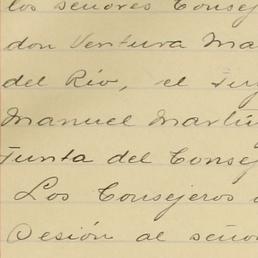 los señores Consej
don Ventura Ma
del Río, el
Manuel Martín
Junta del Consej
Los Consejeros
Sesión al seño